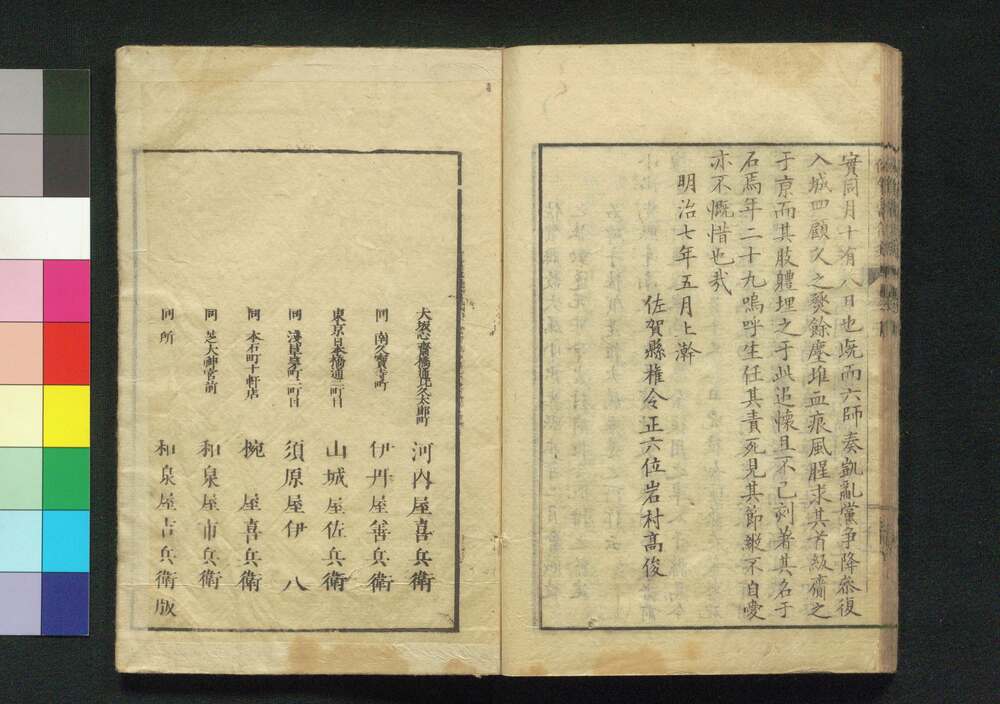 實同月十有八日也既而六師奏凱亂黨爭降叅復
入城四顧久之燹餘塵堆血痕風腥求其首級殯之
于京而其肢軆埋之于此追懷且不已刻著其名于
石焉年二十九嗚呼生任其責死見其節縱不自愛
亦不慨惜也哉
明治七年五月上澣
佐賀縣権令正六位岩村高俊
大坂心齋橋通北久太郎町 河内屋喜兵衛
同 南久寳寺町 伊丹屋善兵衛
東京日本橋通二町目 山城屋佐兵衛
同 淺草茅町二町目 須原屋伊八
同 本石町十軒店 椀屋喜兵衛
同 芝大神宮前 和泉屋市兵衛
同所 和泉屋吉兵衛版